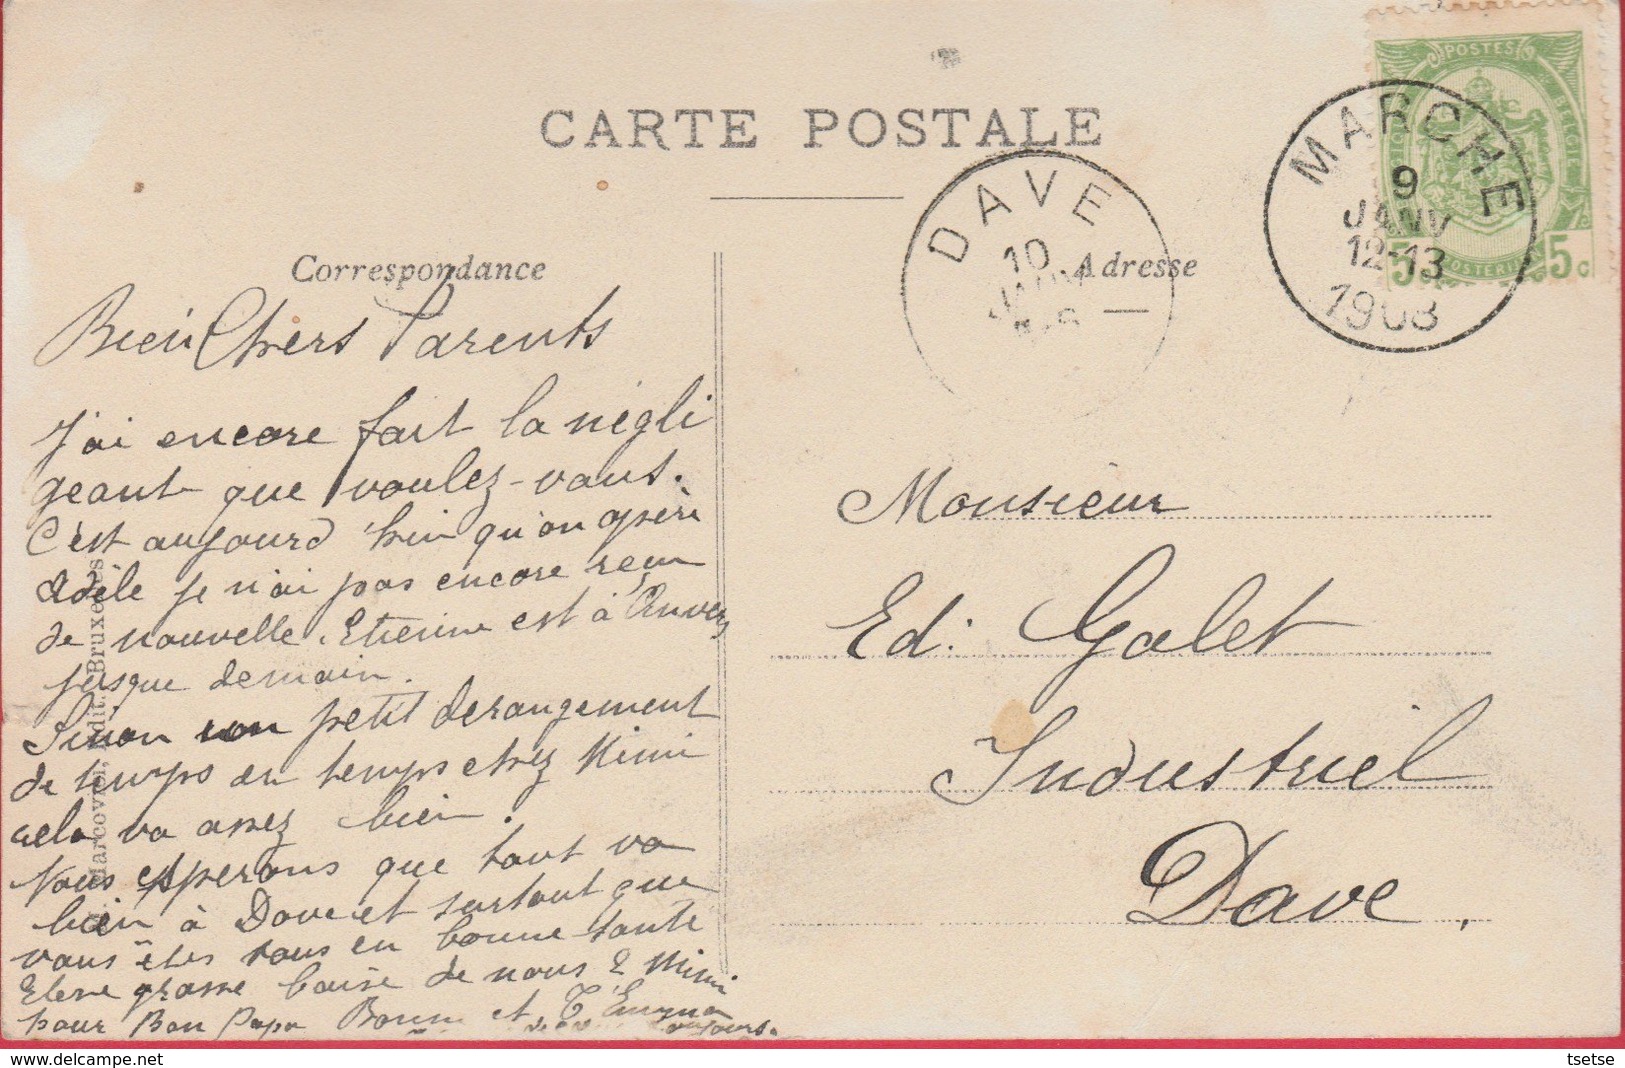 CARTE POSTALE
POSTES
BELGIQUE
5 5c
MARCHE
9
JANV
12-13
1908
DAVE
10
JANV
Correspondance
Adresse
Bien Chers Parents
J'ai encore fait la négli
geant que voulez-vous.
C'est aujourd'hui qu'on opère
Adèle je n'ai pas encore reçu
de nouvelle. Etienne est à Anvers
jusque demain.
Sinon un petit derangement
de temps en temps chez Mimi
cela va assez bien.
Nous esperons que tout va
bien à Dave et surtout que
vous êtes tous en bonne santé
Elene grosse baise de nous 2 Mimi
pour Bon Papa Bonne et T. Emma
toujours
Monsieur
Ed. Galet
Industriel
Dave.
Marcovici, Edit. Bruxelles
tsetse